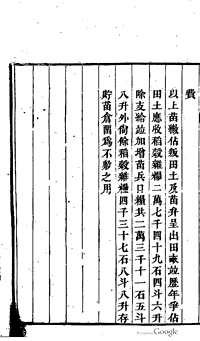 費
以上苗繳佔叛田土及苗弁呈出田畝並歷年爭佔
田土應收稻穀雜糧二萬七千四十九石四斗六升
除支給並加增苗兵口糧共二萬三千十一石五斗
八升外尚餘稻穀雜糧四千三十七石八斗八升存
貯苗倉備爲不敷之用
Google